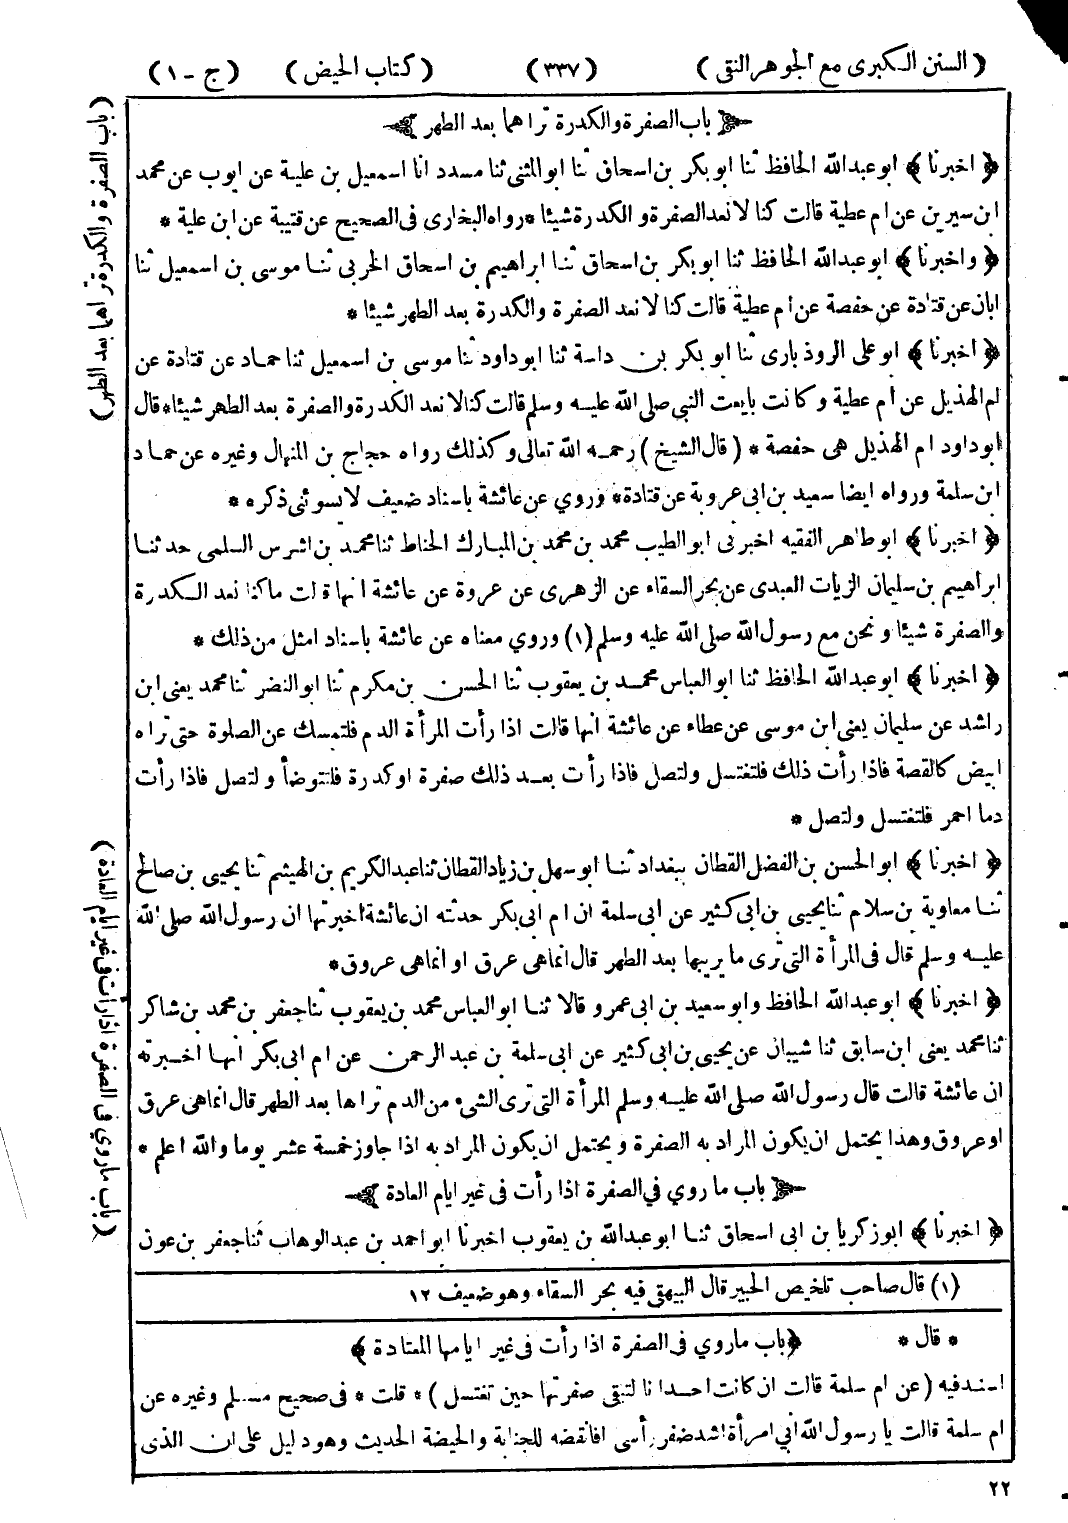 ( السنن الكبرى مع الجوهر النقى ) ( ٣٣٧ ) ( كتاب الحيض ) ( ج - ١ )
باب الصفرة والكدرة تراهما بعد الطهر
﴿ اخبرنا ﴾ ابو عبدالله الحافظ ثنا ابو بكر بن اسحاق ثنا ابو المثنى ثنا مسدد انا اسمعيل بن علية عن ايوب عن محمد
ابن سيرين عن ام عطية قالت كنا لا نعد الصفرة و الكدرة شيئا * رواه البخارى فى الصحيح عن قتيبة عن ابن علية *
﴿ واخبرنا ﴾ ابو عبدالله الحافظ ثنا ابو بكر بن اسحاق ثنا ابراهيم بن اسحاق الحربى ثنا موسى بن اسمعيل ثنا
ابان عن قتادة عن حفصة عن ام عطية قالت كنا لا نعد الصفرة والكدرة بعد الطهر شيئا *
﴿ اخبرنا ﴾ ابو على الروذبارى ثنا ابو بكر بن داسة ثنا ابو داود ثنا موسى بن اسمعيل ثنا حماد عن قتادة عن
ام الهذيل عن أم عطية وكانت بايعت النبى صلى الله عليه وسلم قالت كنا لا نعد الكدرة والصفرة بعد الطهر شيئا * قال
ابو داود ام الهذيل هى حفصة * ( قال الشيخ ) رحمه الله تعالى وكذلك رواه حجاج بن المنهال وغيره عن حماد
ابن سلمة ورواه ايضا سعيد بن ابى عروبة عن قتادة * وروي عن عائشة باسناد ضعيف لا يسوئنى ذكره *
﴿ اخبرنا ﴾ ابو طاهر الفقيه اخبرنى ابو الطيب محمد بن محمد بن المبارك الحناط ثنا محمد بن اشرس السلمى حدثنا
ابراهيم بن سليمان الزيات العبدى عن بحر السقاء عن الزهرى عن عروة عن عائشة انها قالت ما كنا نعد الكدرة
والصفرة شيئا ونحن مع رسول الله صلى الله عليه وسلم (١) وروي معناه عن عائشة باسناد امثل من ذلك *
﴿ اخبرنا ﴾ ابو عبدالله الحافظ ثنا ابو العباس محمد بن يعقوب ثنا الحسن بن مكرم ثنا ابو النضر ثنا محمد يعنى ابن
راشد عن سليمان يعنى ابن موسى عن عطاء عن عائشة انها قالت اذا رأت المرأة الدم فلتمسك عن الصلوة حتى تراه
ابيض كالقصة فاذا رأت ذلك فلتغتسل ولتصل فاذا رأت بعد ذلك صفرة او كدرة فلتتوضأ ولتصل فاذا رأت
دما احمر فلتغتسل ولتصل *
﴿ اخبرنا ﴾ ابو الحسن بن الفضل القطان ببغداد ثنا ابو سهل بن زياد القطان ثنا عبد الكريم بن الهيثم ثنا يحيى بن صالح
ثنا معاوية بن سلام ثنا يحيى بن ابى كثير عن ابى سلمة ان ام ابى بكر حدثته ان عائشة اخبرتها ان رسول الله صلى الله
عليه وسلم قال فى المرأة التى ترى ما يريبها بعد الطهر قال انما هى عرق او انما هى عروق *
﴿ اخبرنا ﴾ ابو عبدالله الحافظ وابو سعيد بن ابى عمرو قالا ثنا ابو العباس محمد بن يعقوب ثنا جعفر بن محمد بن شاكر
ثنا محمد يعنى ابن سابق ثنا شيبان عن يحيى بن ابى كثير عن ابى سلمة بن عبد الرحمن عن ام ابى بكر انها اخبرته
ان عائشة قالت قال رسول الله صلى الله عليه وسلم المرأة التى ترى الشىء من الدم تراها بعد الطهر قال انما هى عرق
او عروق وهذا يحتمل ان يكون المراد به الصفرة ويحتمل ان يكون المراد به اذا جاوز خمسة عشر يوما والله اعلم *
باب ما روي في الصفرة اذا رأت فى غير ايام العادة
﴿ اخبرنا ﴾ ابو زكريا بن ابى اسحاق ثنا ابو عبدالله بن يعقوب اخبرنا ابو احمد بن عبد الوهاب ثنا جعفر بن عون
(١) قال صاحب تلخيص الحبير قال البيهقى فيه بحر السقاء وهو ضعيف ١٢
* قال * ﴿ باب ما روي فى الصفرة اذا رأت فى غير ايامها المعتادة ﴾
اسند فيه ( عن ام سلمة قالت ان كانت احدانا لتبقى صفرتها حين تغتسل ) * قلت * فى صحيح مسلم وغيره عن
ام سلمة قالت يا رسول الله انى امرأة اشد ضفر رأسى افانقضه للجنابة والحيضة الحديث وهو دليل على ان الذى
٢٢
( باب الصفرة والكدرة تراهما بعد الطهر )
( باب ما روي فى الصفرة اذا رأت فى غير ايام العادة )